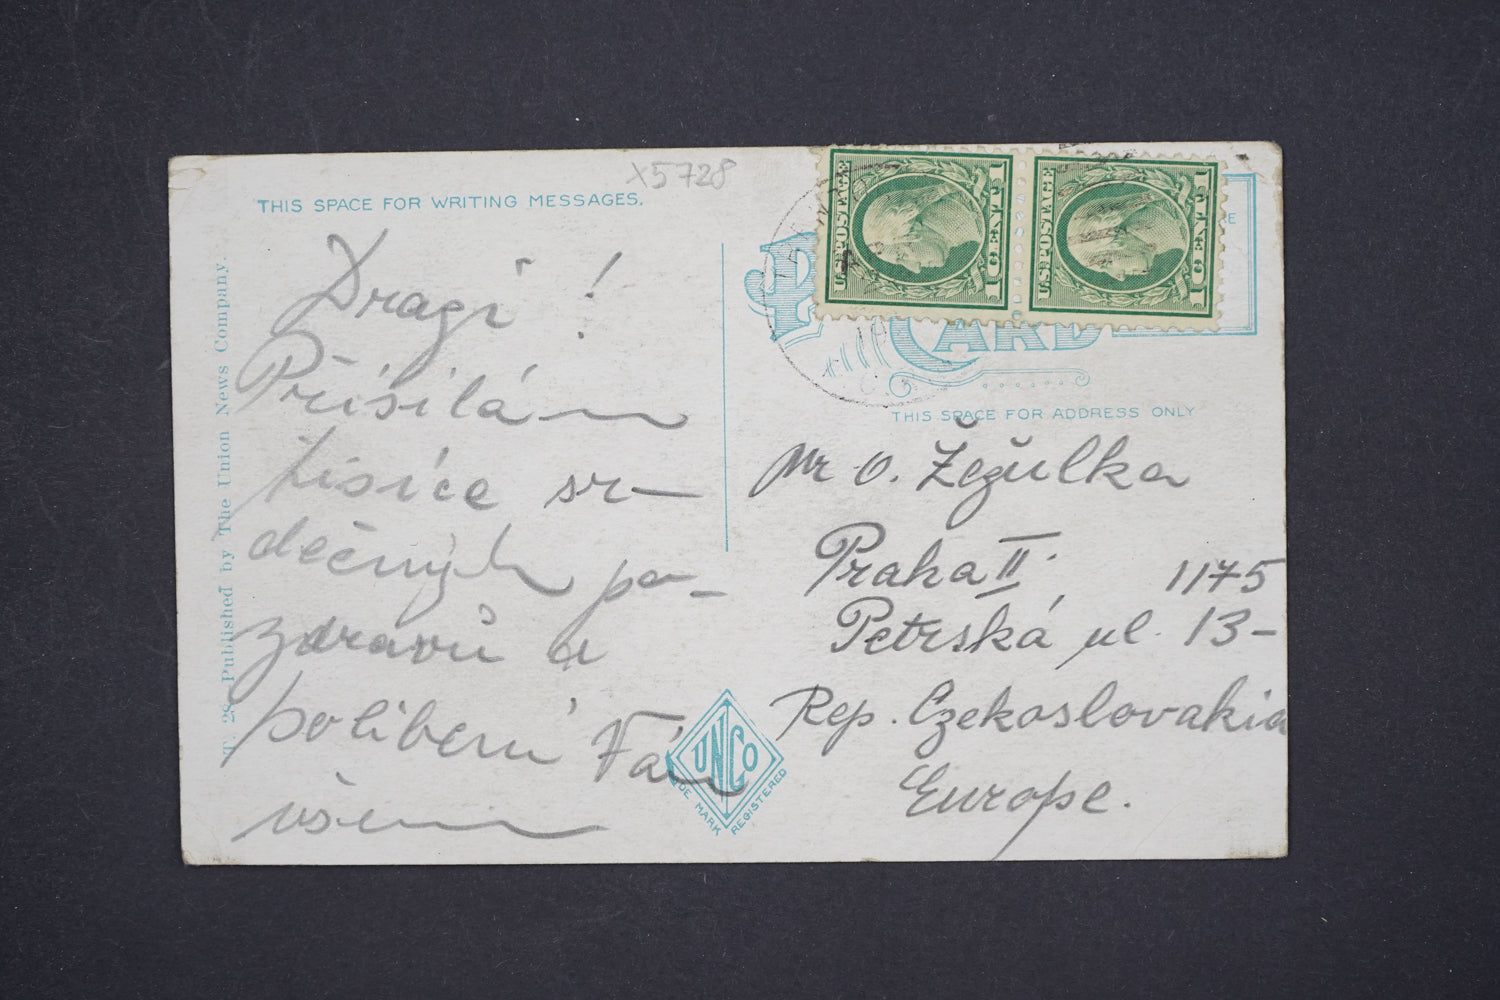 X5728
THIS SPACE FOR WRITING MESSAGES.
Dragi!
Přisilám
tisíce sr-
dečných po-
zdravů a
políbení Vám
všem
T. 28 Published by The Union News Company.
U.S. POSTAGE
1 CENT 1
U.S. POSTAGE
1 CENT 1
CARD
THIS SPACE FOR ADDRESS ONLY
Mr O. Žežulka
Praha II. 1175
Petrská ul. 13-
Rep. Czekoslovakia
Europe.
UNCO
TRADE MARK REGISTERED